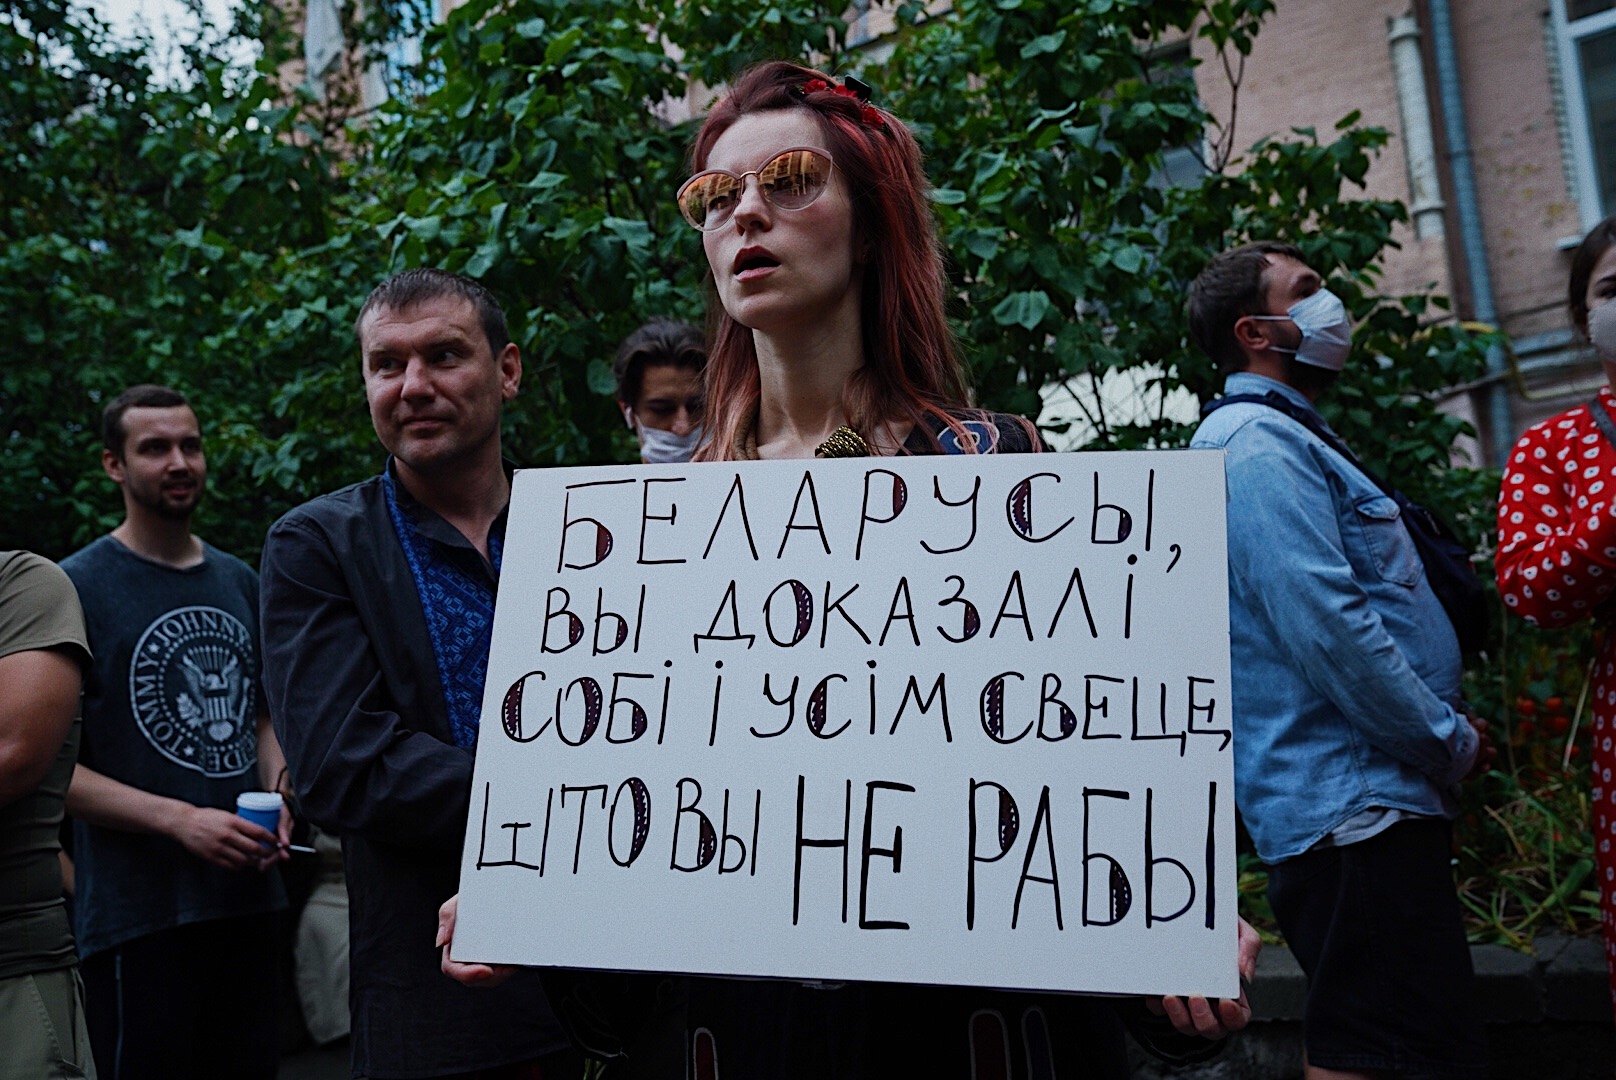 БЕЛАРУСЫ,
ВЫ ДОКАЗАЛІ
СОБІ І УСІМ СВЕЦЕ,
ШТО ВЫ НЕ РАБЫ
JOHNNY
TOMMY